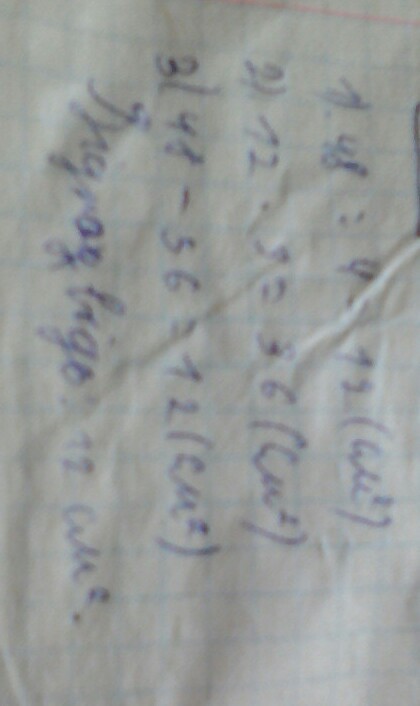 1) 48 : 4 = 12 (см²)
2) 12 · 3 = 36 (см²)
3) 48 - 36 = 12 (см²)
12 см².